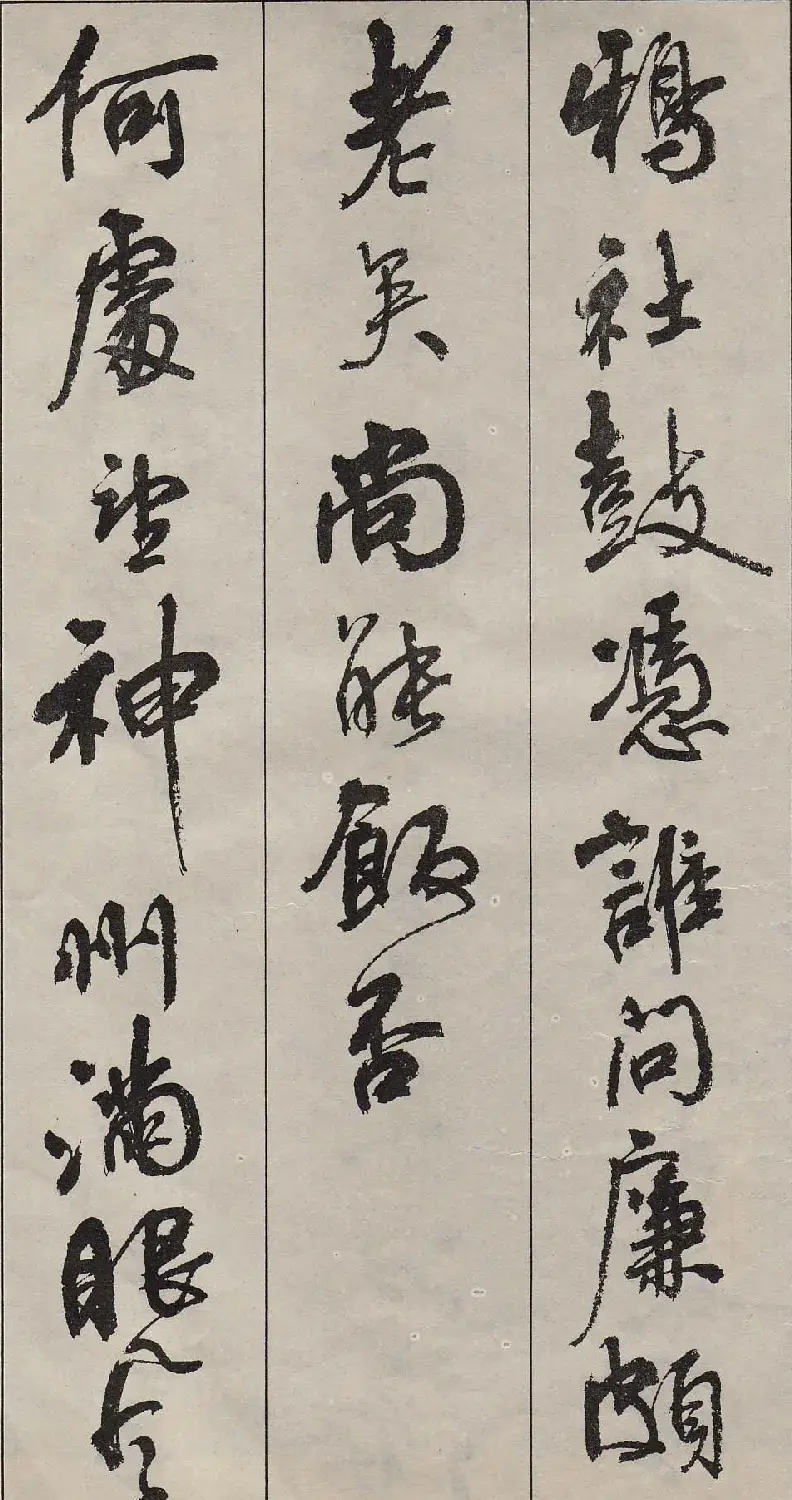 鴉社鼓憑誰問廉頗
老矣尚能飯否
何處望神州滿眼風